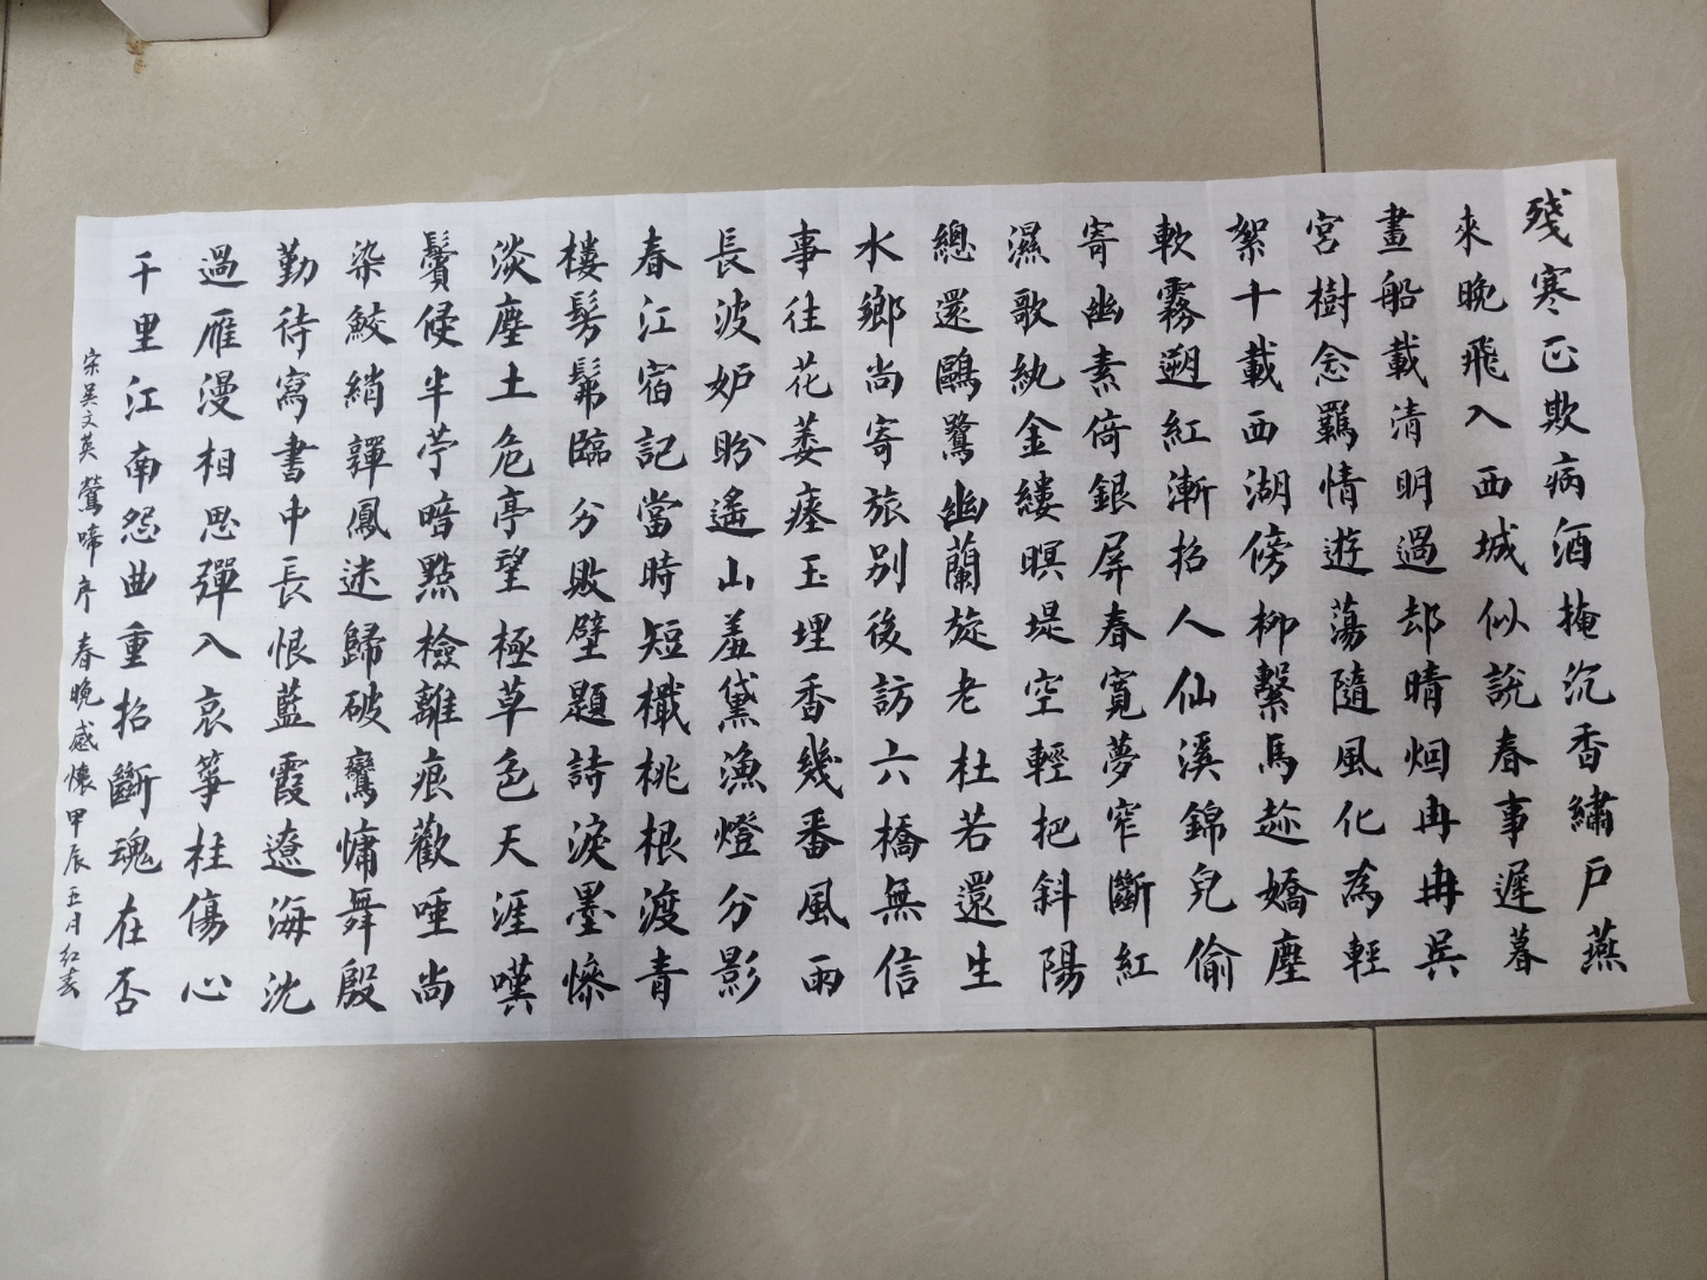 殘寒正欺病酒掩沉香繡戶燕
來晚飛入西城似說春事遲暮
畫船載清明過却晴烟冉冉吳
宮樹念羈情遊蕩隨風化為輕
絮十載西湖傍柳繫馬趂嬌塵
軟霧遡紅漸招人仙溪錦兒偷
寄幽素倚銀屏春寬夢窄斷紅
濕歌紈金縷暝堤空輕把斜陽
總還鷗鷺幽蘭旋老杜若還生
水鄉尚寄旅別後訪六橋無信
事往花萎瘞玉埋香幾番風雨
長波妒盼遙山羞黛漁燈分影
春江宿記當時短檝桃根渡青
樓髣髴臨分敗壁題詩淚墨慘
淡塵土危亭望極草色天涯嘆
鬢侵半苧暗點檢離痕歡唾尚
染鮫綃嚲鳳迷歸破鸞慵舞殷
勤待寫書中長恨藍霞遼海沈
過雁漫相思彈入哀箏柱傷心
千里江南怨曲重招斷魂在否
宋吳文英 鶯啼序 春晚感懷甲辰五月红